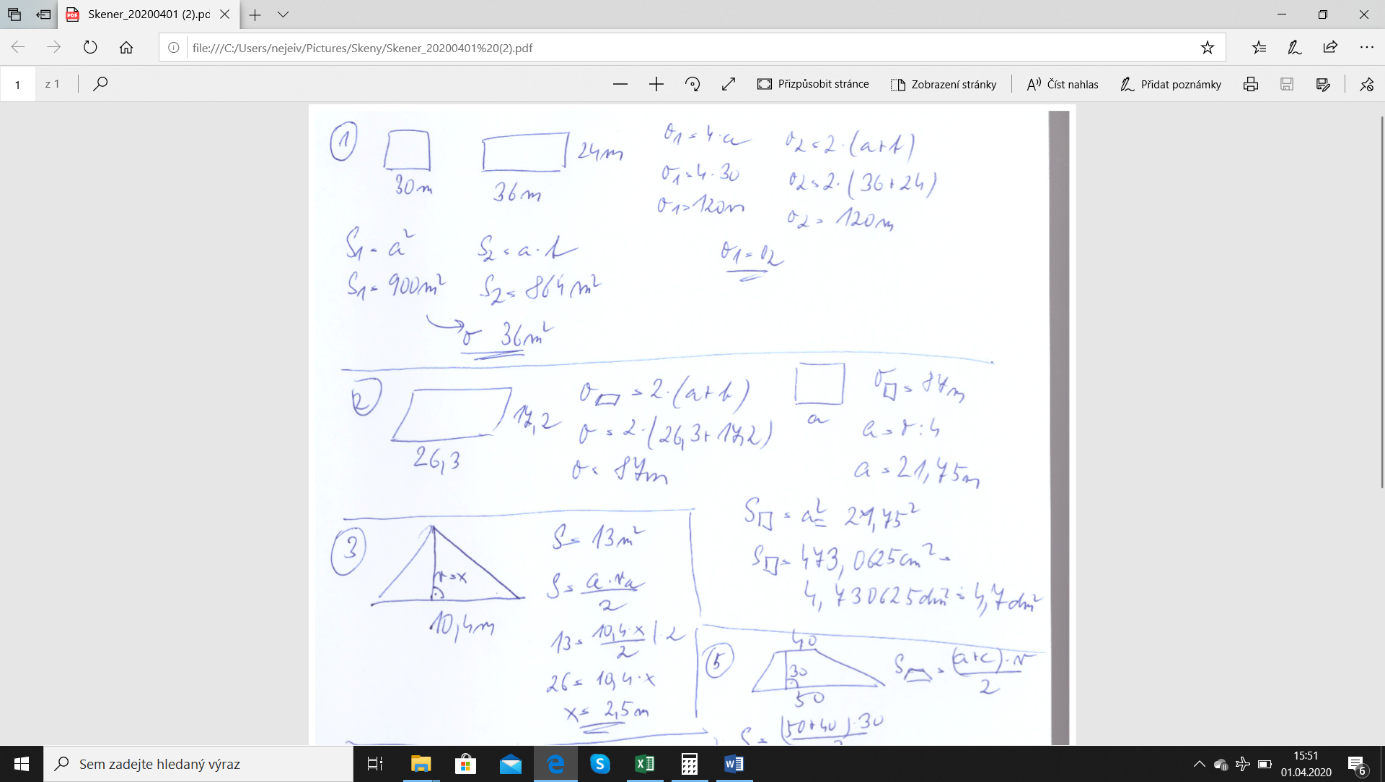 Skener_20200401 (2).pd
file:///C:/Users/nejeiv/Pictures/Skeny/Skener_20200401%20(2).pdf
1 z 1 Přizpůsobit stránce Zobrazení stránky Číst nahlas Přidat poznámky
1
30m
24m
36m
o1 = 4·a
o1 = 4·30
o1 = 120m
o2 = 2·(a+b)
o2 = 2·(36+24)
o2 = 120m
o1 = o2
S1 = a²
S1 = 900m²
S2 = a·b
S2 = 864m²
o 36m²
2
17,2
26,3
o▱ = 2·(a+b)
o = 2·(26,3+17,2)
o = 87m
a
o□ = 87m
a = o:4
a = 21,75m
S□ = a² = 21,75²
S□ = 473,0625cm² =
4,730625dm² ≐ 4,7dm²
3
v=x
10,4m
S = 13m²
S = a·va/2
13 = 10,4·x/2 |·2
26 = 10,4·x
x = 2,5m
5
40
30
50
S = (a+c)·v/2
S = (50+40)·30
Sem zadejte hledaný výraz
15:51
01.04.2020
6